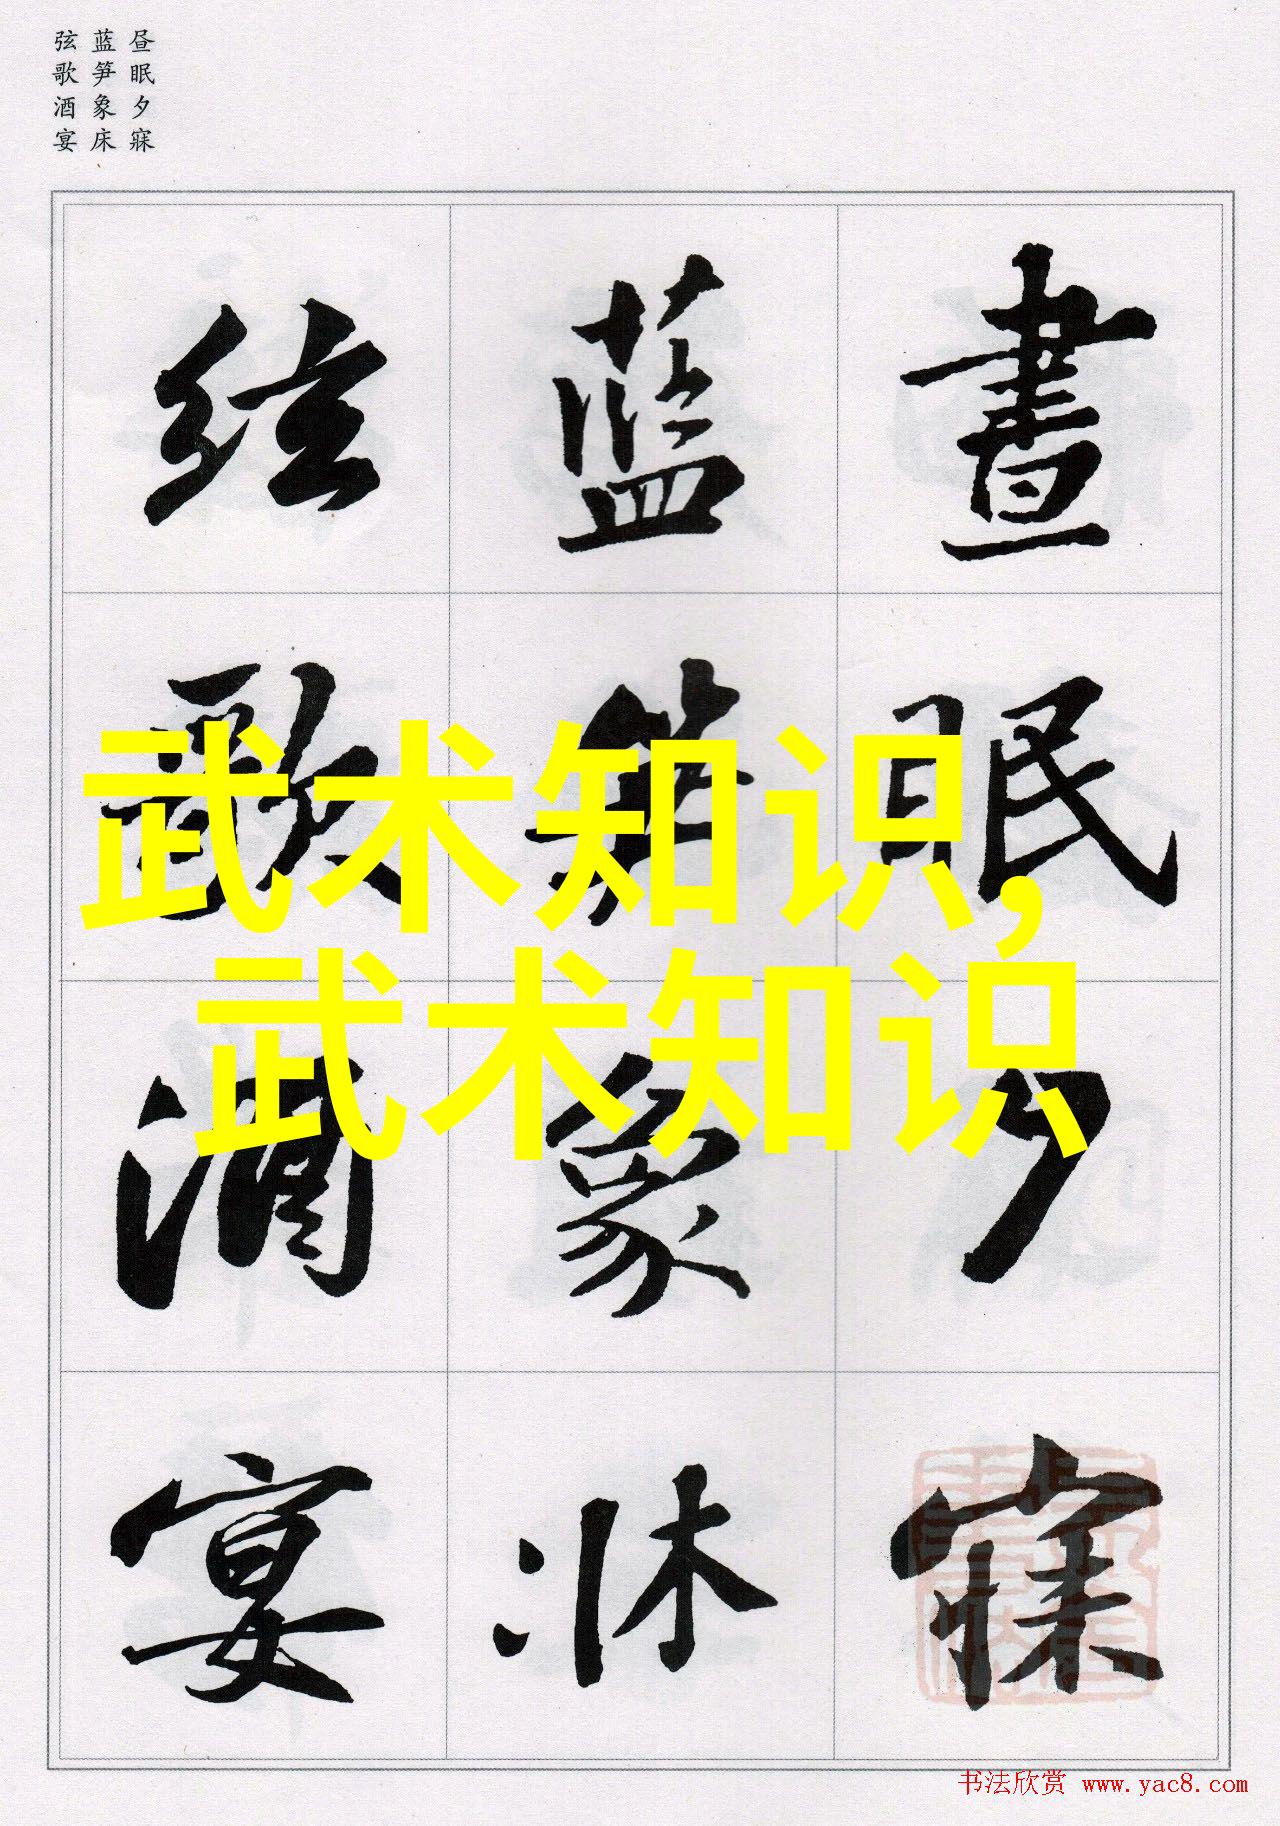 昼眠夕寐
蓝笋象床
弦歌酒宴
晝眠夕寐
蓝笋象牀
弦歌酒宴
武术知识,
武术知识
书法欣赏 www.yac8.com